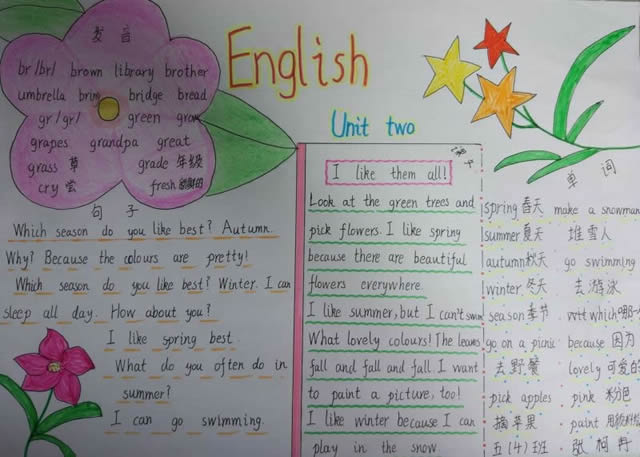 English
Unit two
发音
br/br/ brown library brother
umbrella bring bridge bread
gr/gr/ green grow
grapes grandpa great
grass 草 grade 年级
cry 尝 fresh 新鲜的
句子
Which season do you like best? Autumn.
Why? Because the colours are pretty!
Which season do you like best? Winter. I can
sleep all day. How about you?
I like spring best.
What do you often do in
summer?
I can go swimming.
I like them all!
Look at the green trees and
pick flowers. I like spring
because there are beautiful
flowers everywhere.
I like summer, but I can't swim
What lovely colours! The leaves
fall and fall and fall. I want
to paint a picture, too!
I like winter because I can
play in the snow.
单词
spring 春天 make a snowman
summer 夏天 堆雪人
autumn 秋天 go swimming
winter 冬天 去游泳
season 季节 which
go on a picnic because 因为
去野餐 lovely 可爱的
pick apples pink 粉色
摘苹果 paint
五(4)班 张柯冉